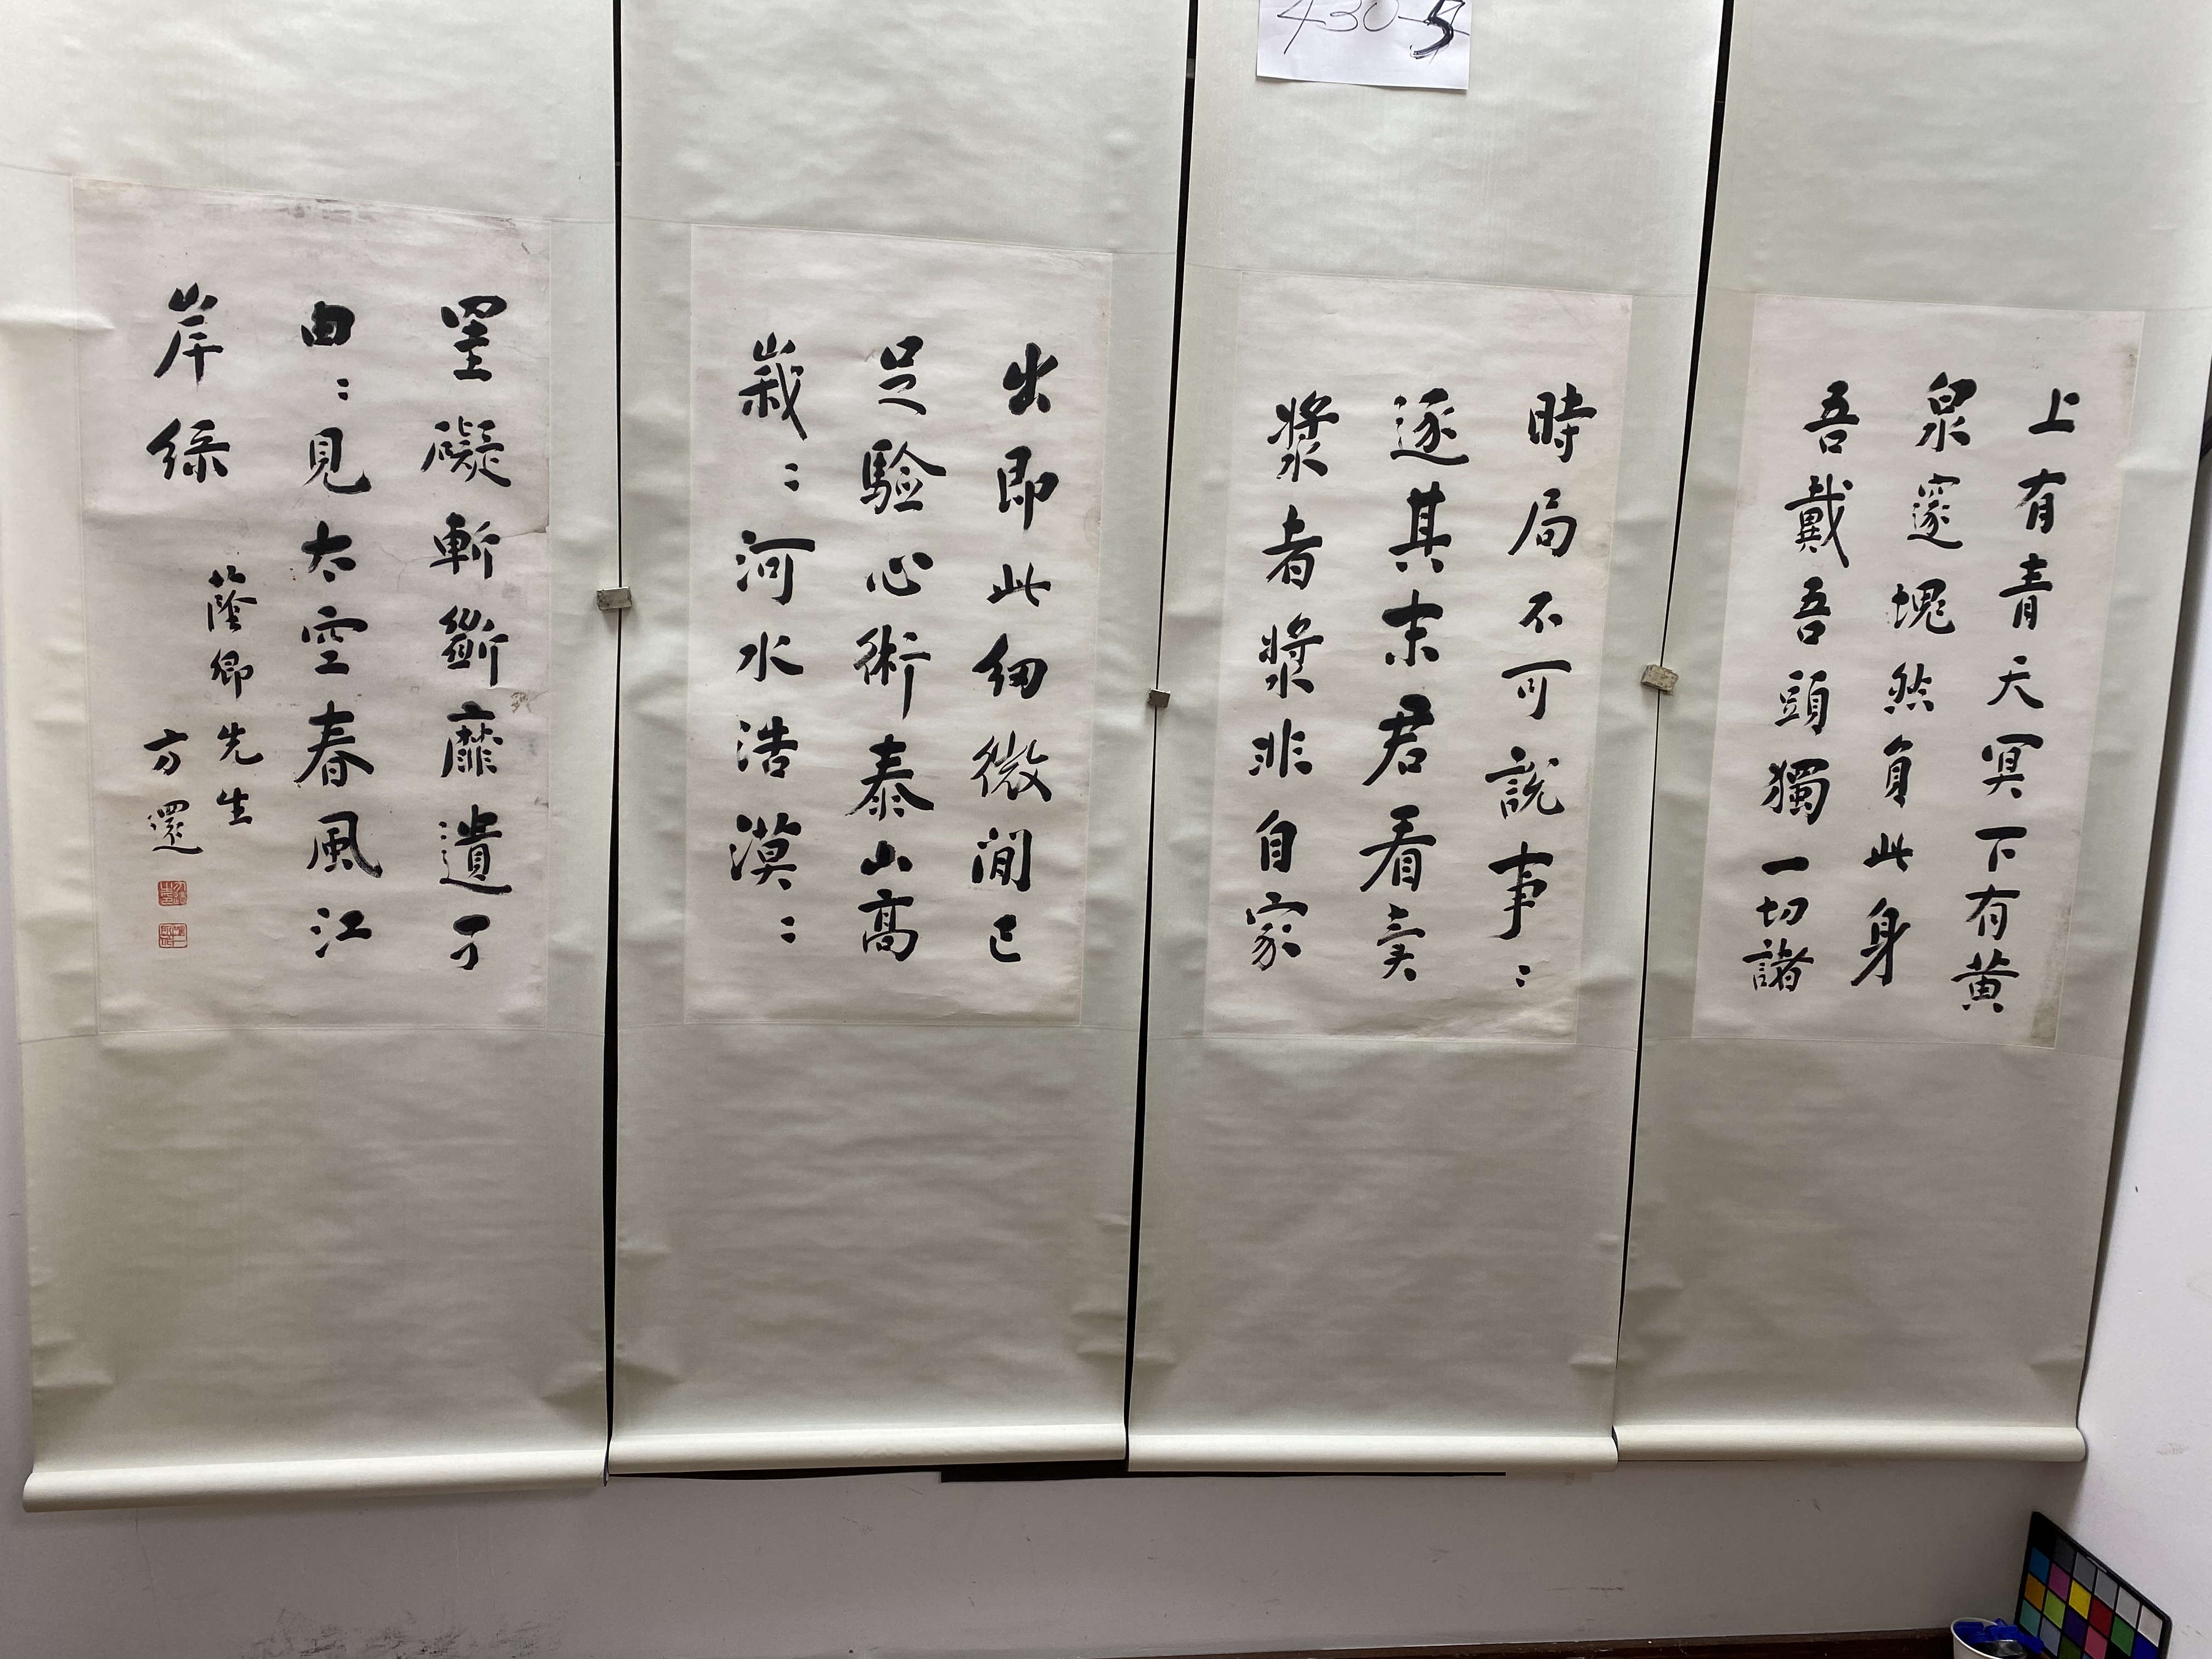 430-5
上有青天冥下有黃
泉邃塊然負此身
吾戴吾頭獨一切諸
時局不可說事〻
逐其末君看賣
漿者漿非自家
出即此細微間已
足驗心術泰山高
峩〻河水浩漠〻
罣礙斬斷靡遺孑
由〻見太空春風江
岸綠
蔭卿先生
方還